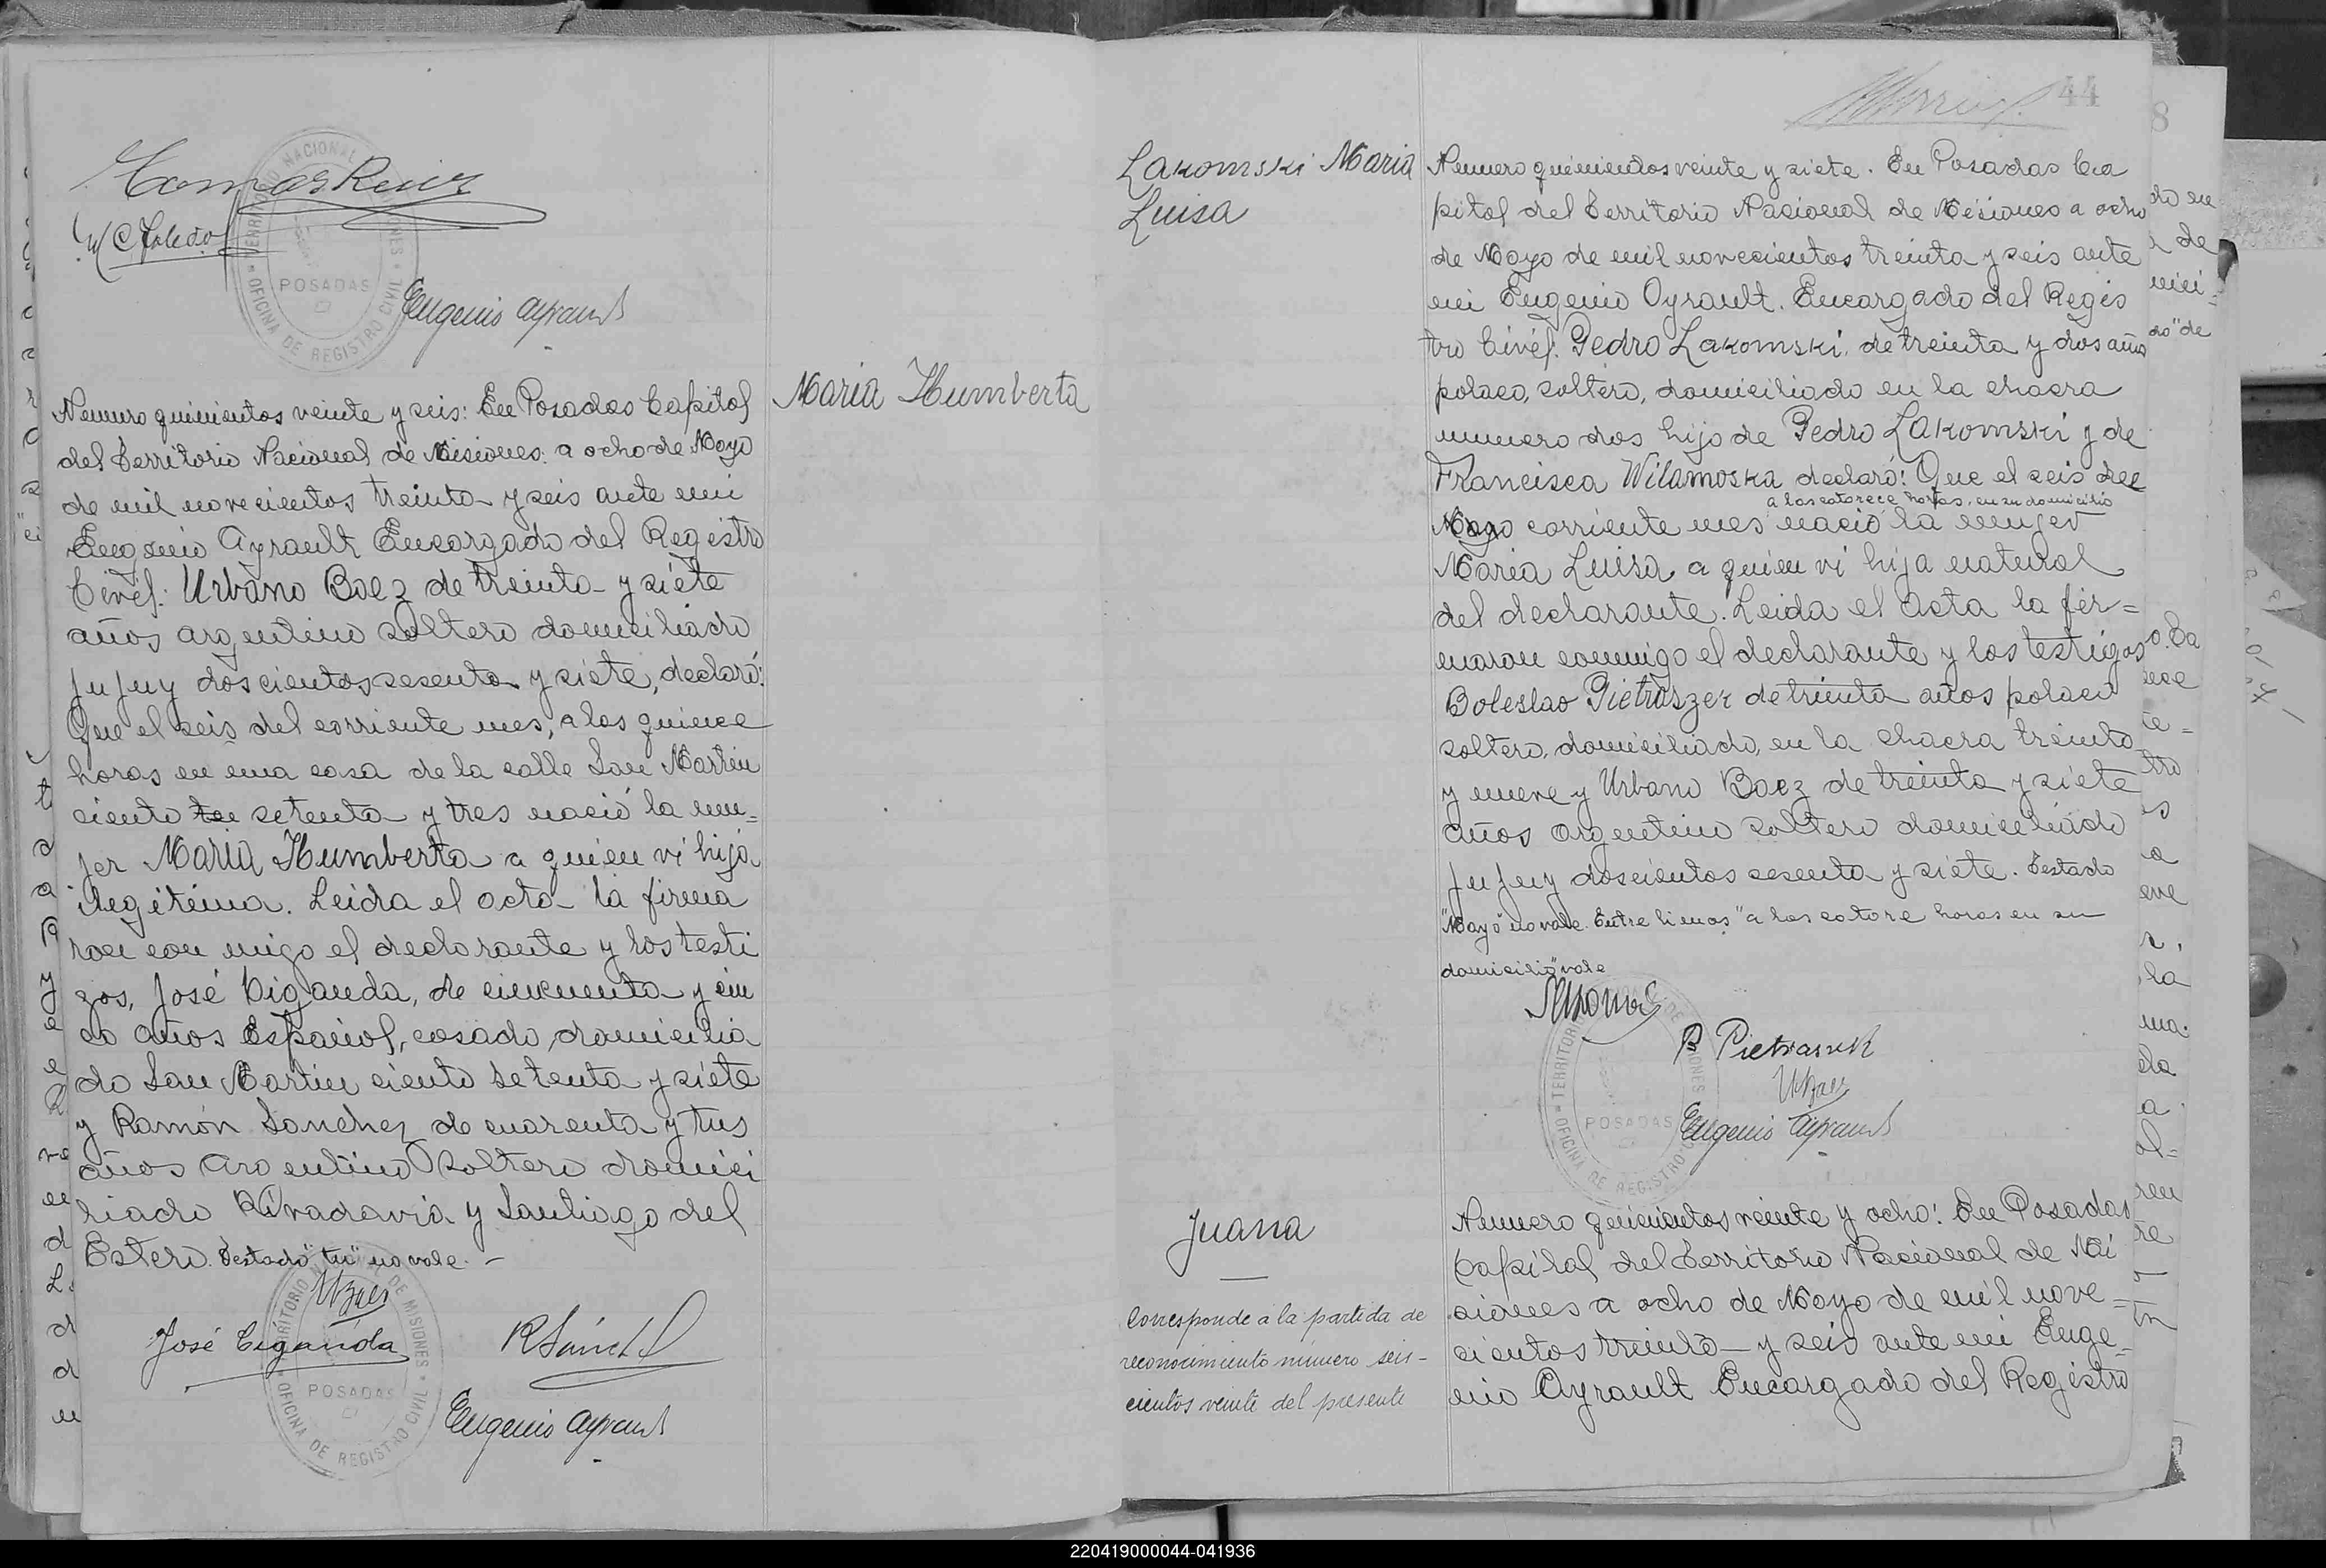 Tomas Ruiz
M C Toledo
TERRITORIO NACIONAL DE MISIONES
POSADAS
OFICINA DE REGISTRO CIVIL
Eugenio Ayrault
Maria Humberta
Numero quinientos veinte y seis: En Posadas Capital
del Territorio Nacional de Misiones: a ocho de Mayo
de mil novecientos treinta y seis ante mi
Eugenio Ayrault Encargado del Registro
Civil: Urbano Baez de treinta y siete
años argentino soltero domiciliado
Jujuy doscientos sesenta y siete, declaró:
Que el seis del corriente mes, a las quince
horas en una casa de la calle San Martin
ciento tre setenta y tres nació la mu=
jer Maria Humberta a quien vi hija
ilegitima. Leida el acta la firma
ron con migo el declarante y los testi
gos, José Ciganda, de cincuenta y cin
co años Español, casado, domicilia
do San Martin ciento setenta y siete
y Ramón Sanchez de cuarenta y tres
años argentino soltero domici
liado Rivadavia y Santiago del
Estero. Testado "tre" no vale. -
UBaez
José Ciganda
RSánchez
TERRITORIO NACIONAL DE MISIONES
POSADAS
OFICINA DE REGISTRO CIVIL
Eugenio Ayrault
44
8
Lakomski Maria
Luisa
Numero quinientos veinte y siete. En Posadas Ca
pital del Territorio Nacional de Misiones a ocho
de Mayo de mil novecientos treinta y seis ante
mi Eugenio Ayrault. Encargado del Regis
tro Civil: Pedro Lakomski, de treinta y dos años
polaco, soltero, domiciliado en la chacra
numero dos hijo de Pedro Lakomski y de
Francisca Wilamoska declaró: Que el seis del
a las catorce horas, en su domicilio
Mayo corriente mes nació la mujer
Maria Luisa a quien vi hija natural
del declarante. Leida el acta la fir=
maron conmigo el declarante y los testigos
Boleslao Pietraszek de treinta años polaco
soltero, domiciliado, en la chacra treinta
y nueve y Urbano Baez de treinta y siete
años argentino soltero domiciliado
Jujuy doscientos sesenta y siete. Testado
"Mayo" no vale. Entre lineas "a las catorce horas en su
domicilio" vale
B Pietraszek
UBaez
TERRITORIO NACIONAL DE MISIONES
POSADAS
OFICINA DE REGISTRO CIVIL
Eugenio Ayrault
Juana
Corresponde a la partida de
reconocimiento número seis-
cientos veinte del presente
Numero quinientos veinte y ocho: En Posadas
Capital del Territorio Nacional de Mi
siones a ocho de Mayo de mil nove=
cientos treinta y seis ante mi Euge=
nio Ayrault Encargado del Registro
220419000044-041936